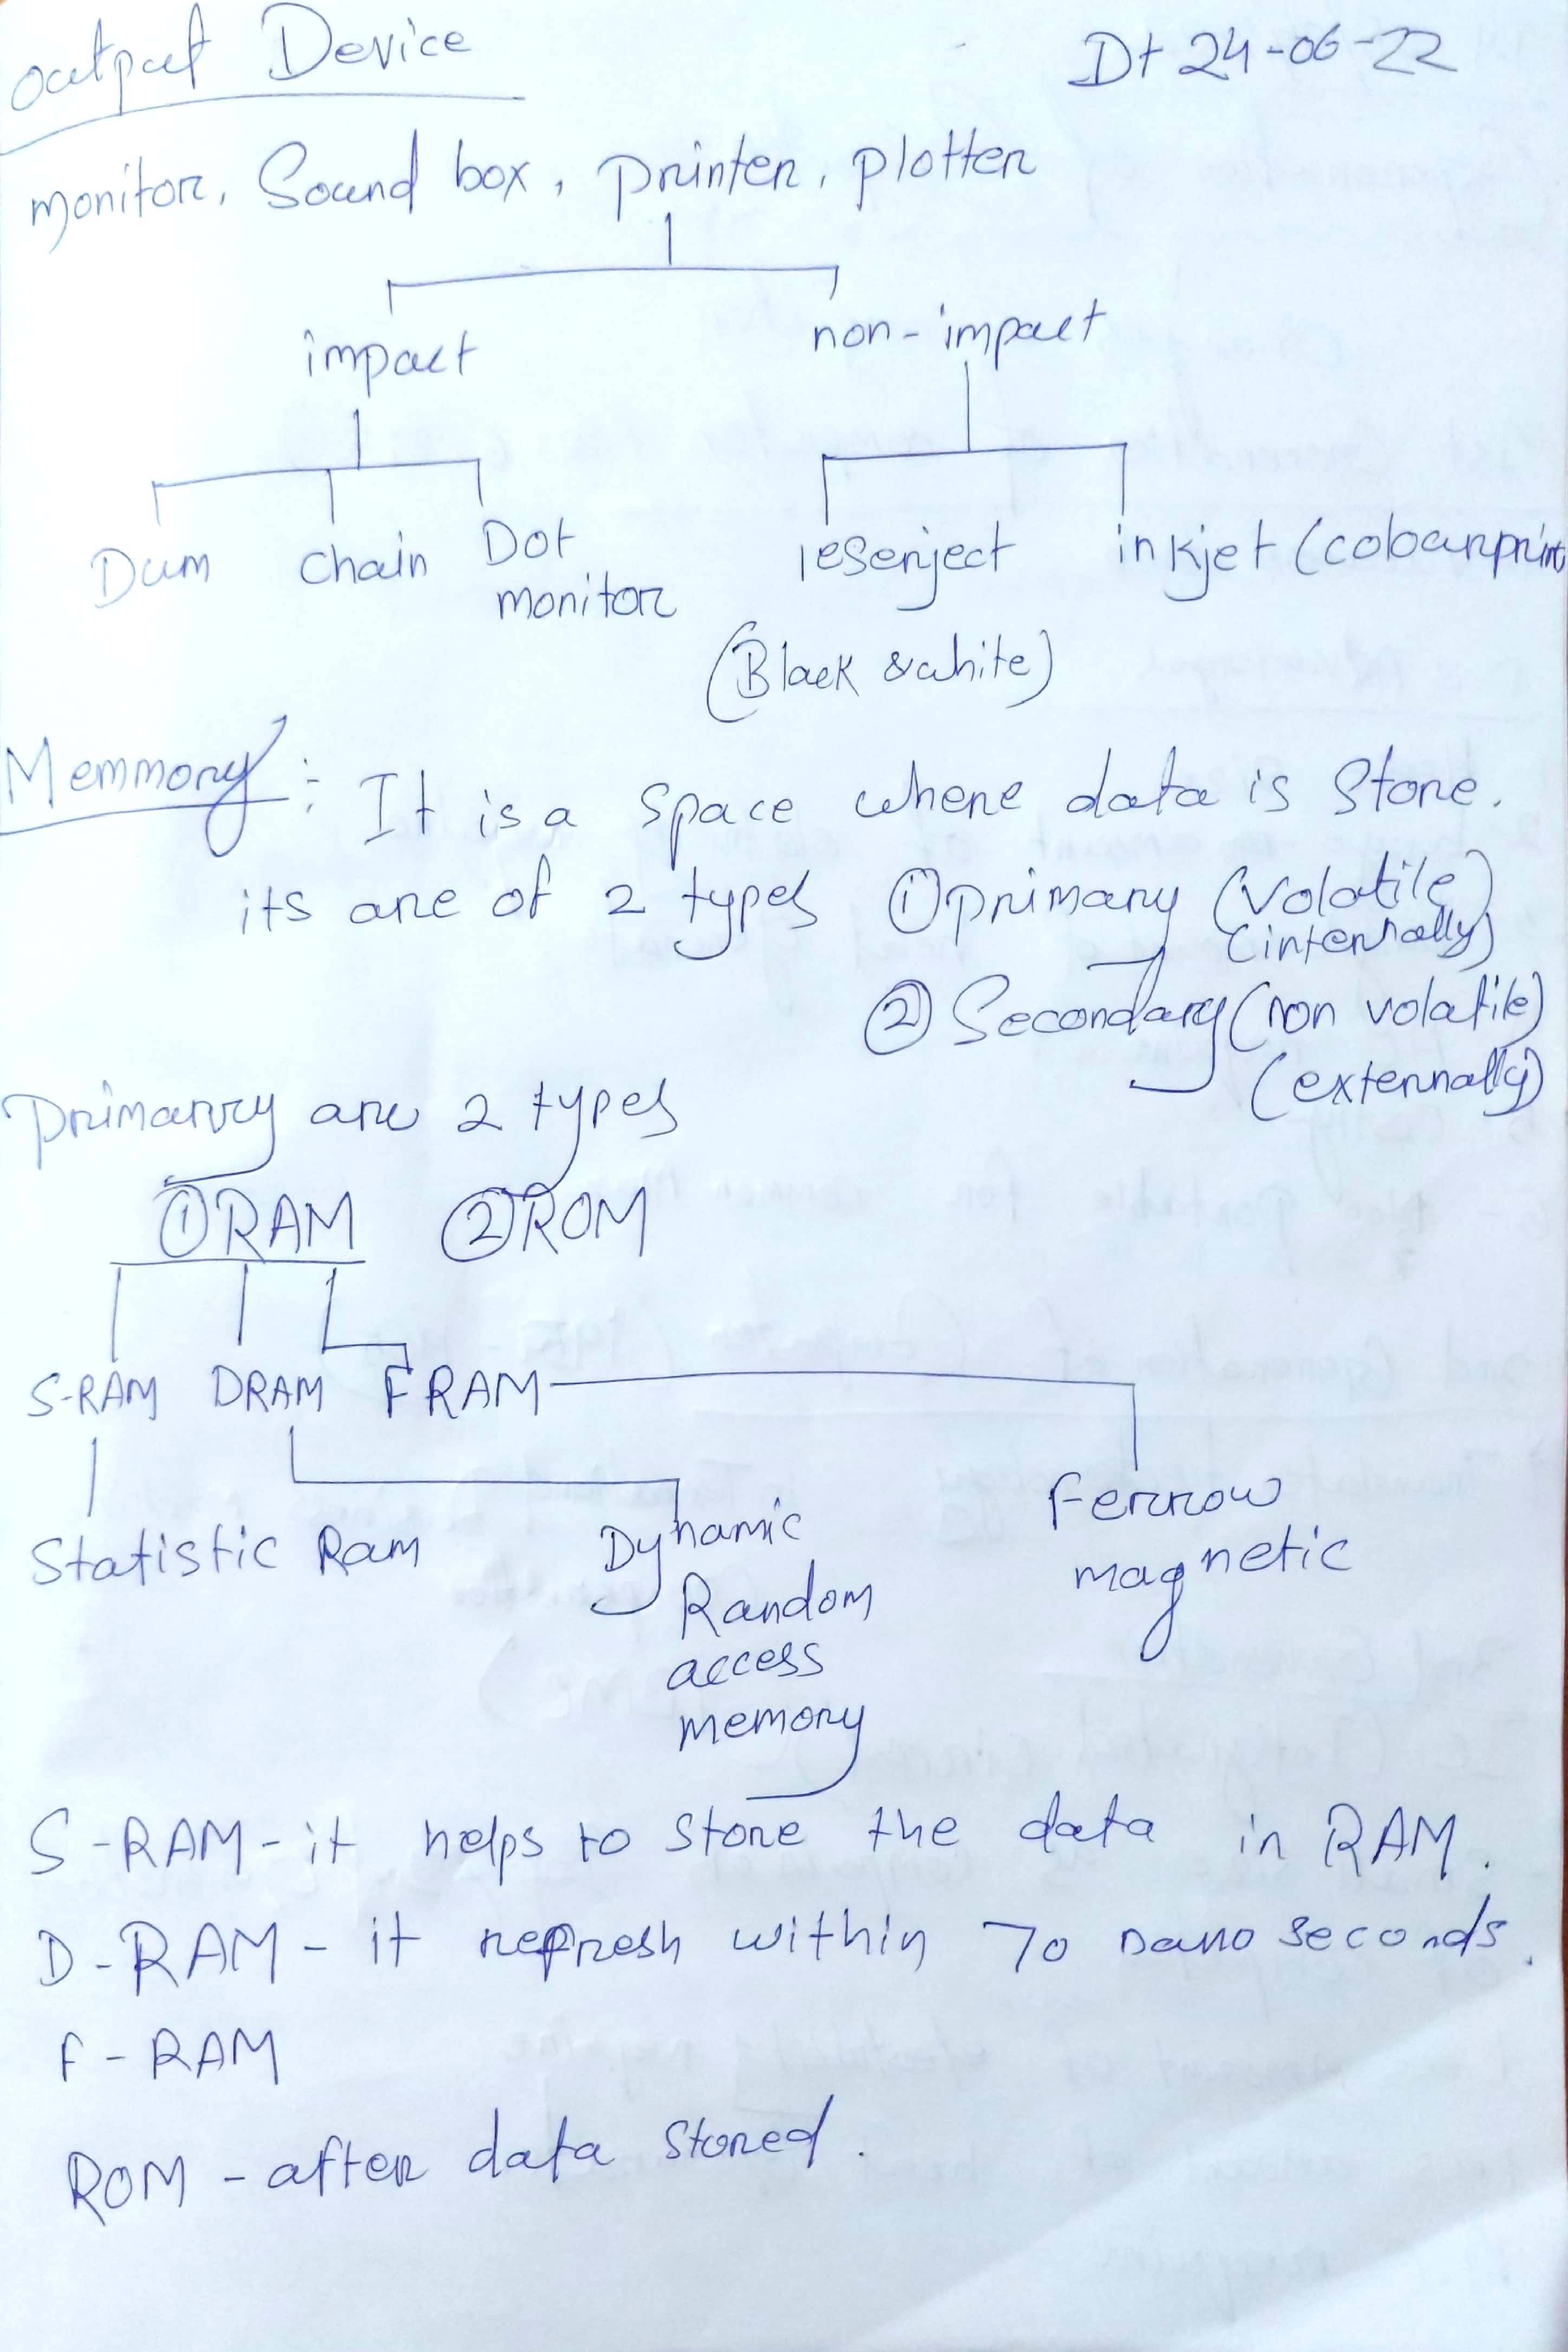 output Device
Dt 24-06-22
monitor, Sound box, printer, plotter
impact
non-impact
Dum chain Dot
monitor
leserject
inkjet (
(Black & white)
Memmory : It is a space where data is store.
its are of 2 types ① primary (volatile)
(internally)
② Secondary (non volatile)
(externally)
primarry are 2 types
① RAM ② ROM
S-RAM DRAM FRAM
Statistic Ram
Dynamic
Random
access
memory
ferrow
magnetic
S-RAM - it helps to store the data in RAM.
D-RAM - it refresh within 70 nano seconds.
F-RAM
ROM - after data stored.